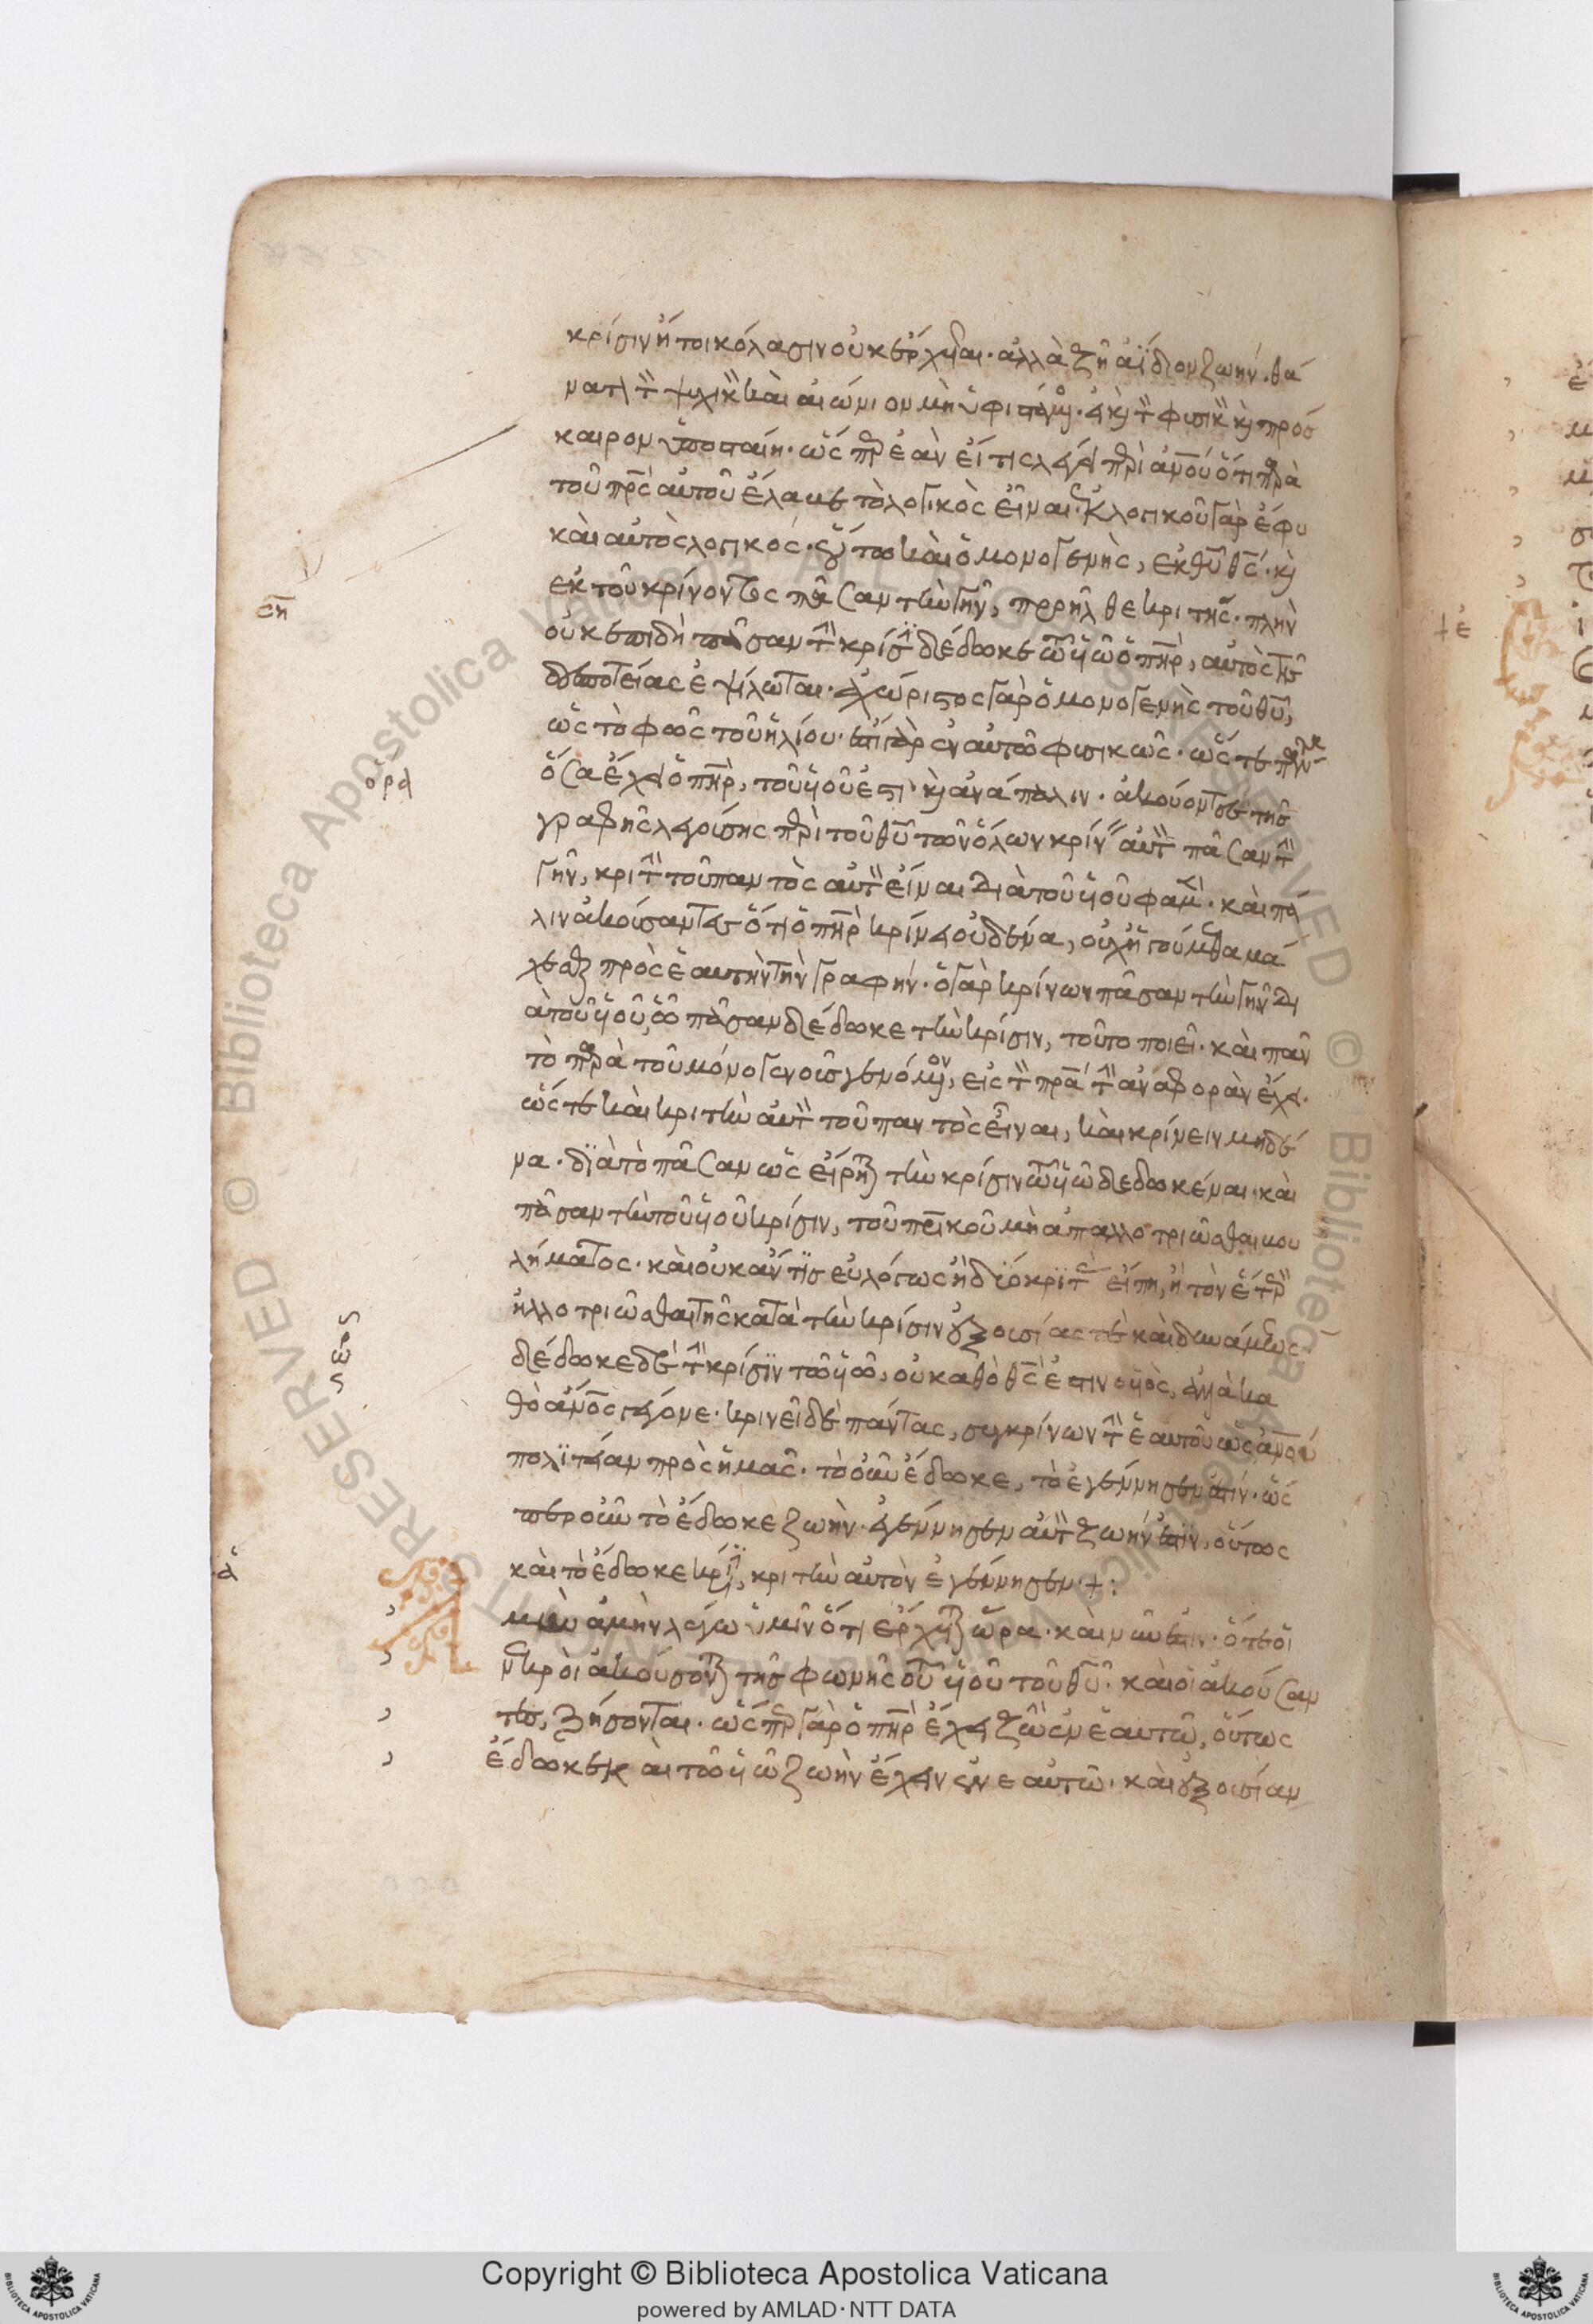 κρίσιν ἤτοι κόλασιν οὐκ ἔρχεται· ἀλλὰ ζῆ ἀΐδιον ζωήν· θα
καιρον ὑποσταίη· ὥσπερ ἐὰν εἴ τις λέγει περὶ ἀνου ὅτι παρὰ
τοῦ πρς αὐτοῦ ἔλαβε τὸ λογικὸς εἶναι· ἐκ λογικοῦ γὰρ ἔφυ
καὶ αὐτὸς λογικός· οὕτω καὶ ὁ μονογενὴς, ἐκ θυ θς· καὶ
ση
ἐκ τοῦ κρίνοντος πᾶσαν τὴν γῆν, προῆλθε κριτής· πλὴν
οὐκ ἐπειδὴ πᾶσαν τὴν κρίσιν δέδωκε τῷ υἱῷ ὁ πηρ, αὐτὸς τῆς
δεσποτείας ἐψίλωται· ἀχώριστος γὰρ ὁ μονογενὴς τοῦ θυ,
ὡς τὸ φῶς τοῦ ἡλίου· ἔστι γὰρ ἐν αὐτῷ φυσικῶς· ὥστε πάντα
ὅρα
ὅσα ἔχει ὁ πηρ, τοῦ υἱοῦ ἐστι· καὶ ἀνάπαλιν· ἀκούοντες τῆς
γραφῆς λεγούσης περὶ τοῦ θυ τῶν ὅλων κρίνειν αὐτὸν πᾶσαν τὴν
γῆν, κριτὴν τοῦ παντὸς αὐτὸν εἶναι διὰ τοῦ υἱοῦ φαμέν· καὶ πά
λιν ἀκούσαντες ὅτι ὁ πηρ κρίνει οὐδένα, οὐχ ἡγούμεθα μά
χεσθαι πρὸς ἑαυτὴν τὴν γραφήν· ὁ γὰρ κρίνων πᾶσαν τὴν γῆν δι
ὰ τοῦ υἱοῦ, ᾧ πᾶσαν δέδωκε τὴν κρίσιν, τοῦτο ποιεῖ· καὶ πᾶν
τὸ παρὰ τοῦ μονογενοῦς γενόμενον, εἰς τὸν πρα τὴν ἀναφορὰν ἔχει·
ὥστε καὶ κριτὴν αὐτὸν τοῦ παντὸς εἶναι, καὶ κρίνειν μηδέ
να· διὰ τὸ πᾶσαν ὡς εἴρηται τὴν κρίσιν τῷ υἱῷ δεδωκέναι· καὶ
πᾶσαν τὴν τοῦ υἱοῦ κρίσιν, τοῦ πατρικοῦ μὴ ἀπαλλοτριῶσθαι βου
λήματος· καὶ οὐκ ἄν τις εὐλόγως ἢ δύο κριτὰς εἴπη, ἢ τὸν ἕτερον
ἠλλοτριῶσθαι τῆς κατὰ τὴν κρίσιν ἐξουσίας τὲ καὶ δυνάμεως·
δέδωκε δὲ τὴν κρίσιν τῷ υἱῷ, οὐ καθὸ θς ἐστιν ὁ υἱὸς, ἀλλὰ κα
θὸ ἀνος γέγονε· κρινεῖ δὲ πάντας, συγκρίνων τὴν ἑαυτοῦ ὡς ἀνου
πολιτείαν πρὸς ἡμᾶς· τὸ οὖν ἔδωκε, τὸ ἐγέννησεν ἐστίν· ὥσ
περ οὖν τὸ ἔδωκε ζωὴν· ἐγέννησεν αὐτὸν ζωήν ἐστιν, οὕτως
καὶ τὸ ἔδωκε κρίσιν, κριτὴν αὐτὸν ἐγέννησεν·+:
Ἀμὴν ἀμὴν λέγω ὑμῖν ὅτι ἔρχεται ὥρα· καὶ νῦν ἐστιν· ὅτε οἱ
νεκροὶ ἀκούσονται τῆς φωνῆς τοῦ υἱοῦ τοῦ θυ· καὶ οἱ ἀκούσαν
τες, ζήσονται· ὥσπερ γὰρ ὁ πηρ ἔχει ζωὴν ἐν ἑαυτῷ, οὕτως
ἔδωκε καὶ τῷ υἱῷ ζωὴν ἔχειν ἐν ἑαυτῷ· καὶ ἐξουσίαν
Copyright © Biblioteca Apostolica Vaticana
powered by AMLAD·NTT DATA